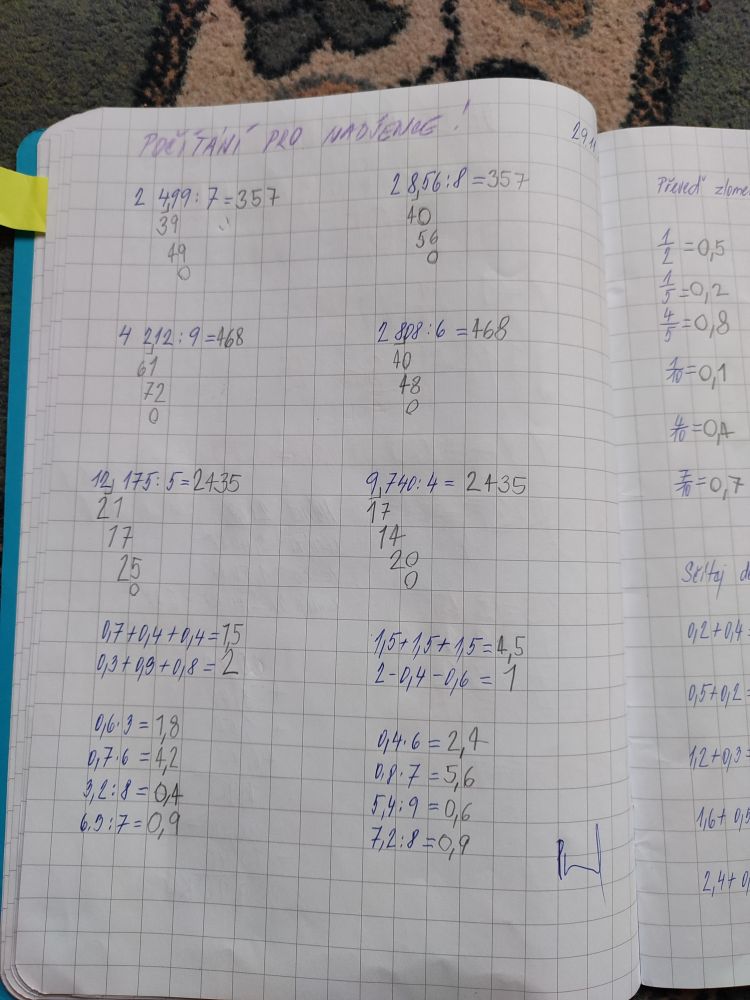 POČÍTÁNÍ PRO NADŠENCE!
29.11
2 499 : 7 = 357
39
49
0
2 8,56 : 8 = 357
40
56
0
4 212 : 9 = 468
61
72
0
2 808 : 6 = 468
40
48
0
12 175 : 5 = 2435
21
17
25
0
9 740 : 4 = 2435
17
14
20
0
0,7+0,4+0,4=1,5
0,3+0,9+0,8=2
1,5+1,5+1,5=4,5
2-0,4-0,6 = 1
0,6·3=1,8
0,7·6=4,2
3,2:8=0,4
6,3:7=0,9
0,4·6=2,4
0,8·7=5,6
5,4:9=0,6
7,2:8=0,9
Převeď zlome
1/2 =0,5
1/5=0,2
4/5=0,8
1/10=0,1
4/10=0,4
7/10=0,7
Sčítej d
0,2+0,4=
0,5+0,2=
1,2+0,3=
1,6+0,5
2,4+0,